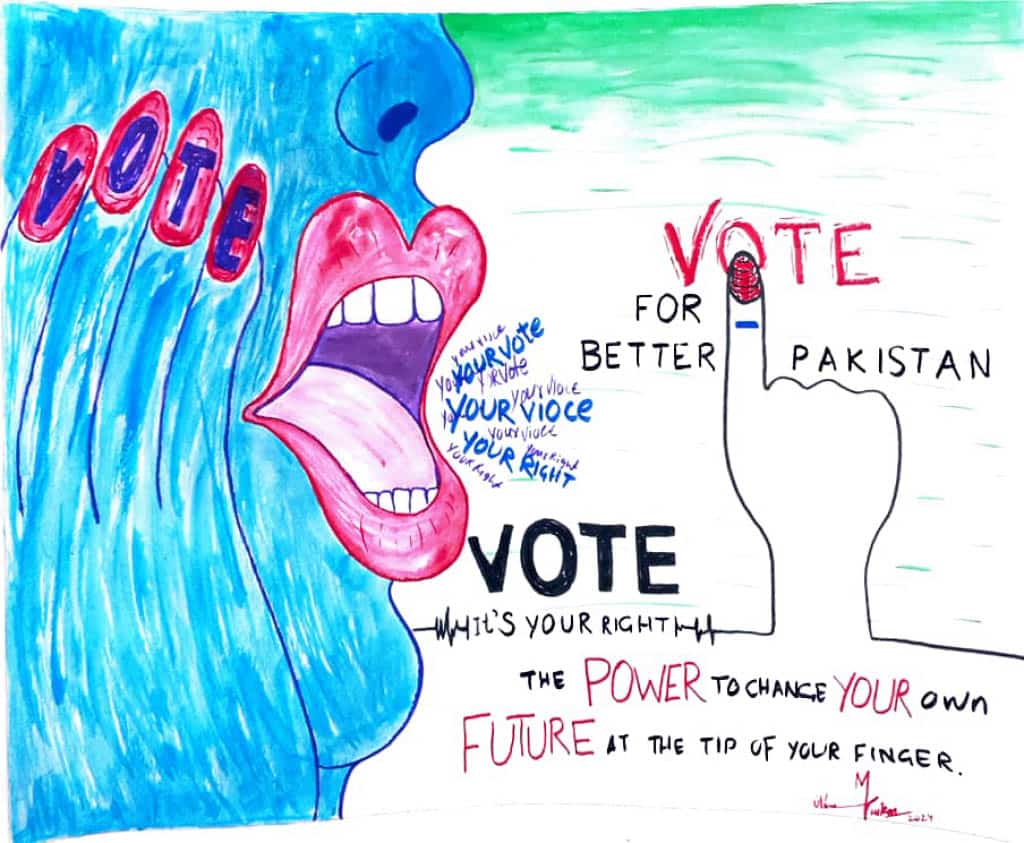 VOTE
VOTE
FOR
BETTER PAKISTAN
YOUR VOTE
YOUR VIOCE
YOUR VIOCE
YOUR VIOLE
YOUR RIGHT
YOUR Right
YOUR Right
VOTE
It'S YOUR RIGHT
THE POWER TO CHANGE YOUR OWN
FUTURE AT THE TIP OF YOUR FINGER.
2024